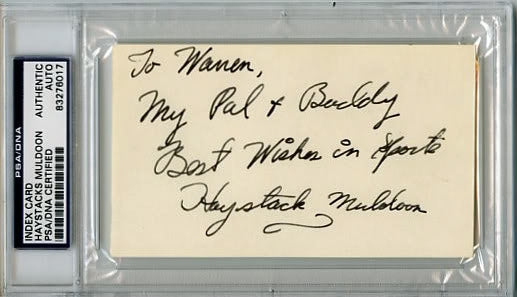 To Warren,
My Pal & Buddy
Best Wishes in Sports
Haystack Muldoon
PSA/DNA
INDEX CARD
HAYSTACKS MULDOON
PSA/DNA CERTIFIED
AUTHENTIC
AUTO
83276017